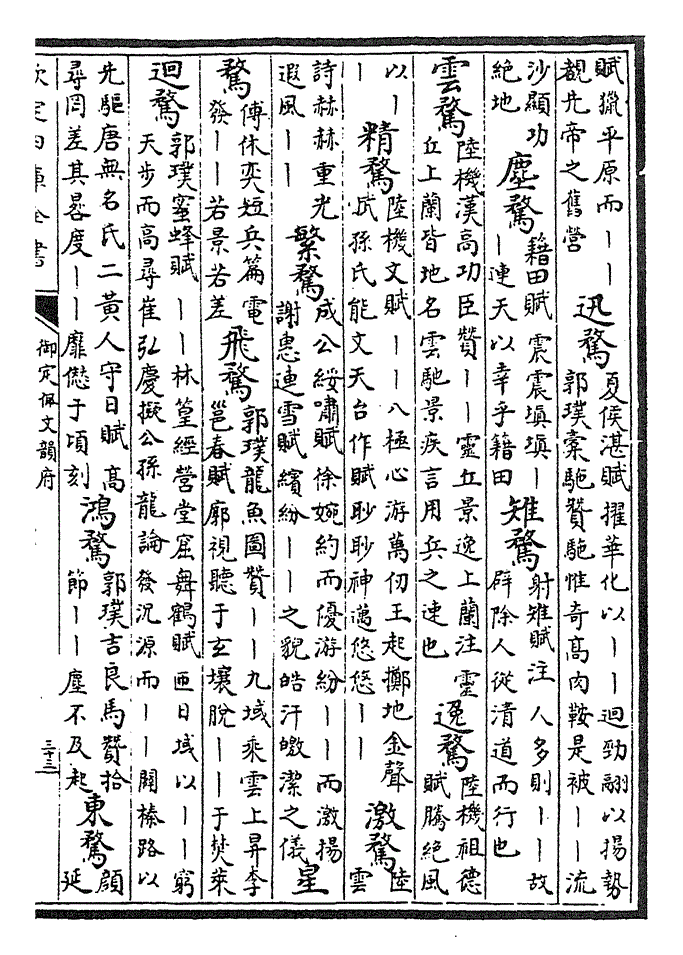 賦獵平原而丨丨
覩先帝之舊營
迅騖
夏侯湛賦擢華化以丨丨迴勁翮以揚勢
郭璞橐駞贊駞惟奇高肉鞍是被丨丨流
沙顯功
絶地
塵騖
籍田賦 震震塡塡丨
丨連天以幸乎籍田
雉騖
射雉賦注 人多則丨丨故
辟除人從清道而行也
雲騖
陸機漢高功臣贊丨丨靈丘景逸上蘭注靈
丘上蘭皆地名雲馳景疾言用兵之速也
逸騖
陸機祖德
賦騰絶風
以丨
丨
精騖
陸機文賦丨丨八極心游萬仞王起擲地金聲
賦孫氏能文天台作賦眇眇神邁悠悠丨丨
激騖
陸
雲
詩赫赫重光
遐風丨丨
繁騖
成公綏嘯賦徐婉約而優游紛丨丨而激揚
謝惠連雪賦繽紛丨丨之貌皓汗皦潔之儀
皇
騖
傅休奕短兵篇電
發丨丨若景若差
飛騖
郭璞龍魚圖贊丨丨九域乘雲上昇李
邕春賦廓視聽于玄壤脫丨丨于焚萊
迴騖
郭璞蜜蜂賦 丨丨林篁經營堂窟舞鶴賦 匝日域以丨丨窮
天步而高尋崔弘慶擬公孫龍論發沉源而丨丨闢榛路以
先驅唐無名氏二黃人守日賦 高
尋罔差其晷度丨丨靡愆于頃刻
鴻騖
郭璞吉良馬贊拾
節丨丨塵不及起
東騖
顔
延
欽定四庫全書
御定佩文韻府
三十三